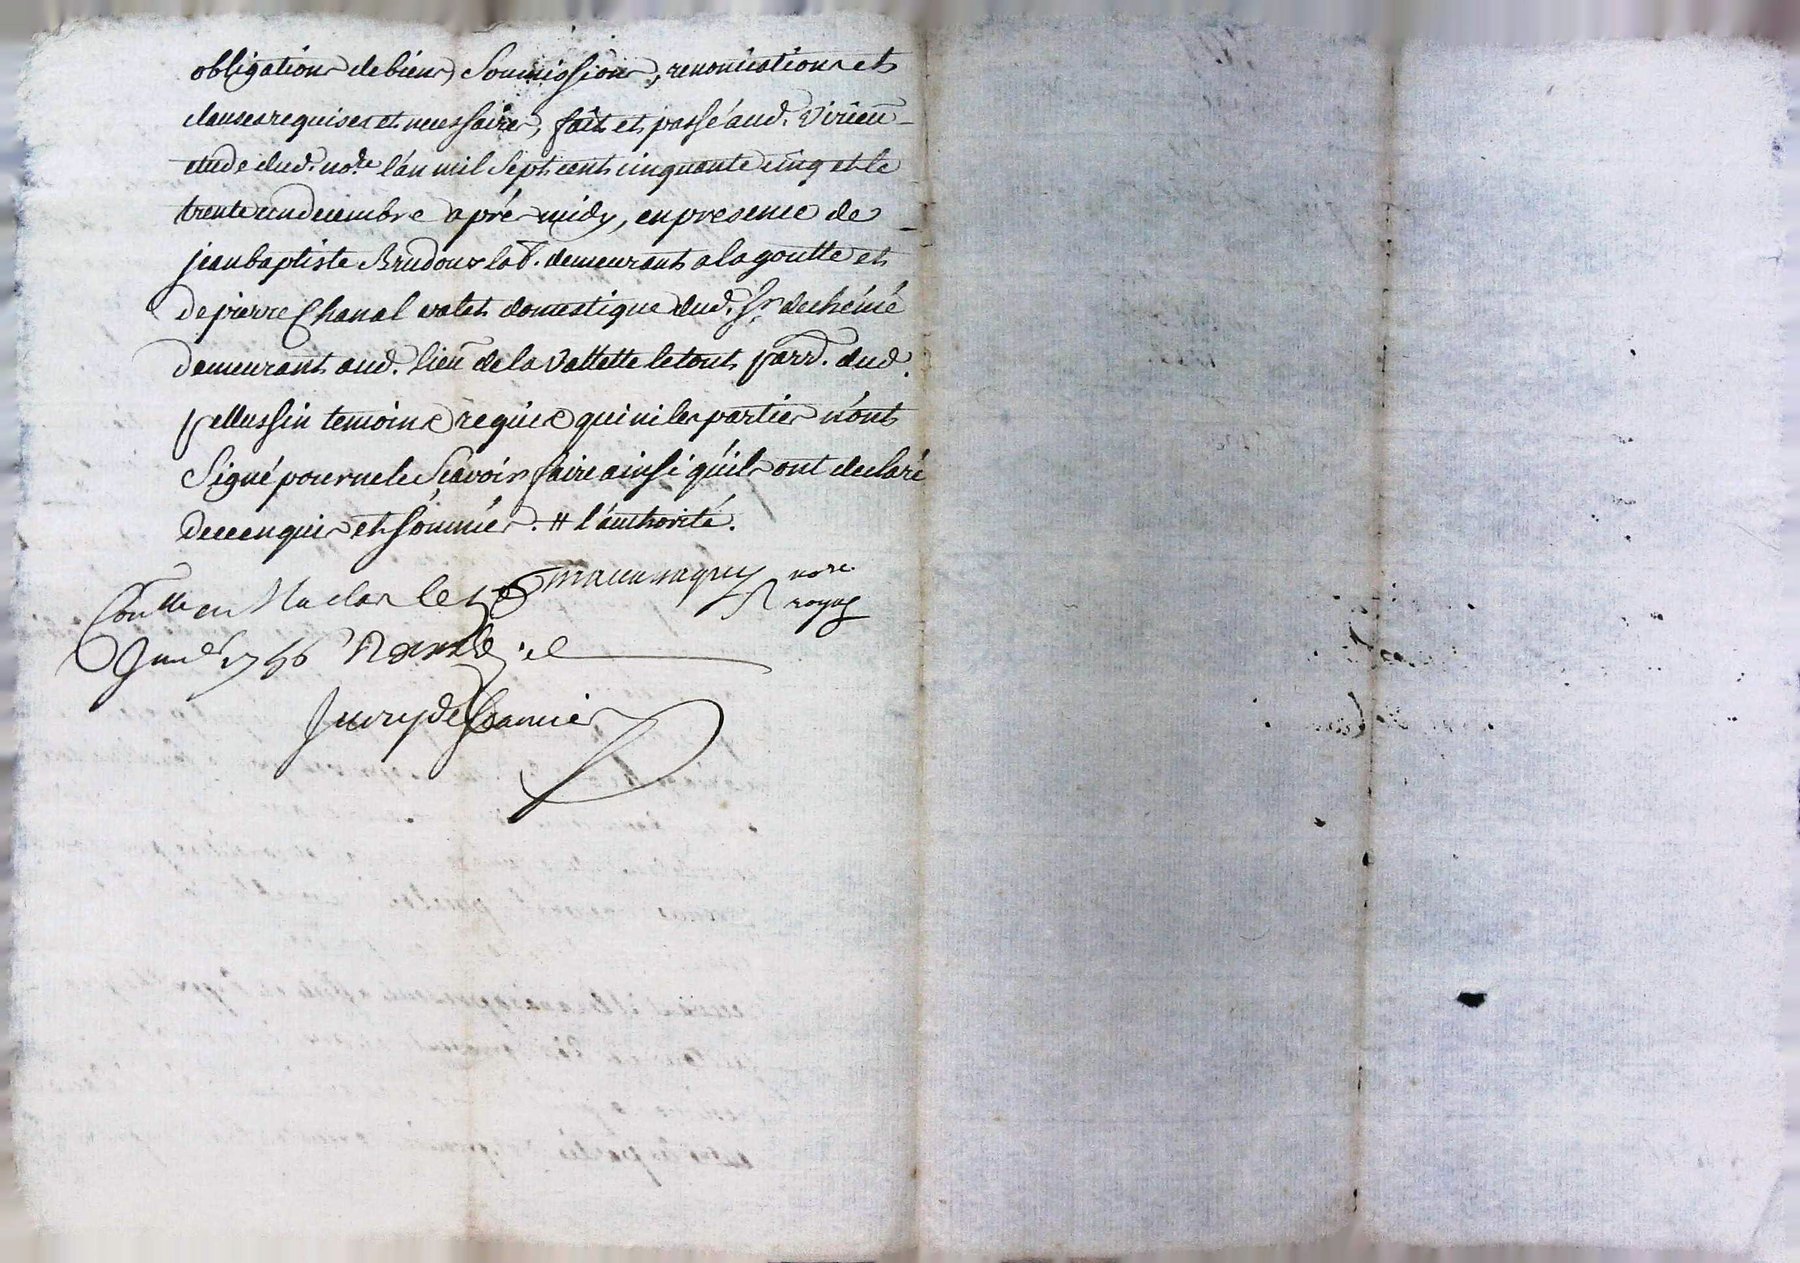 obligations de biens, Soumissions, renonciations et
clauses requises et necessaires, fait et passé aud. Virieu
etude dud. no.re l'an mil Sept cent cinquante cinq et le
trente un decembre aprés midy, en presence de
jean baptiste Brudoux lab.r demeurant a la goutte et
de pierre Chanal valet domestique dud. Sr.
demeurant aud. lieu de la Vallette le tout parr. dud.
pellussin temoins requis qui ni les parties n'ont
Signé pour ne le Scavoir faire ainsi qu'ils ont declaré
de ce enquis et sommés. # l'authorité.
no.re
royal
en le
1756